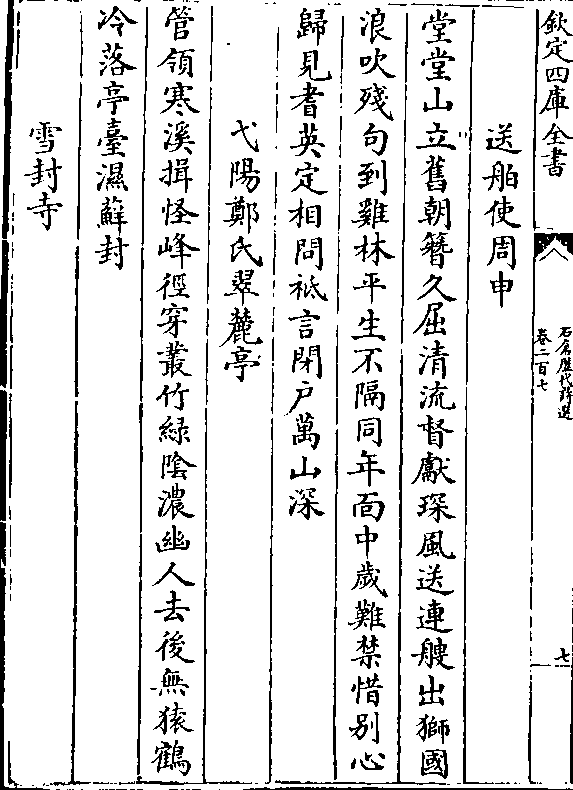 欽定四庫全書
石倉歷代詩選
卷二百七
七
送舶使周申
堂堂山立舊朝簪久屈清流督獻琛風送連艘出獅國
浪吹殘句到雞林平生不隔同年面中歲難禁惜别心
歸見耆英定相問祗言閉户萬山深
弋陽鄭氏翠麓亭
管領寒溪揖怪峰徑穿叢竹緑陰濃幽人去後無猿鶴
冷落亭臺濕蘚封
雪封寺